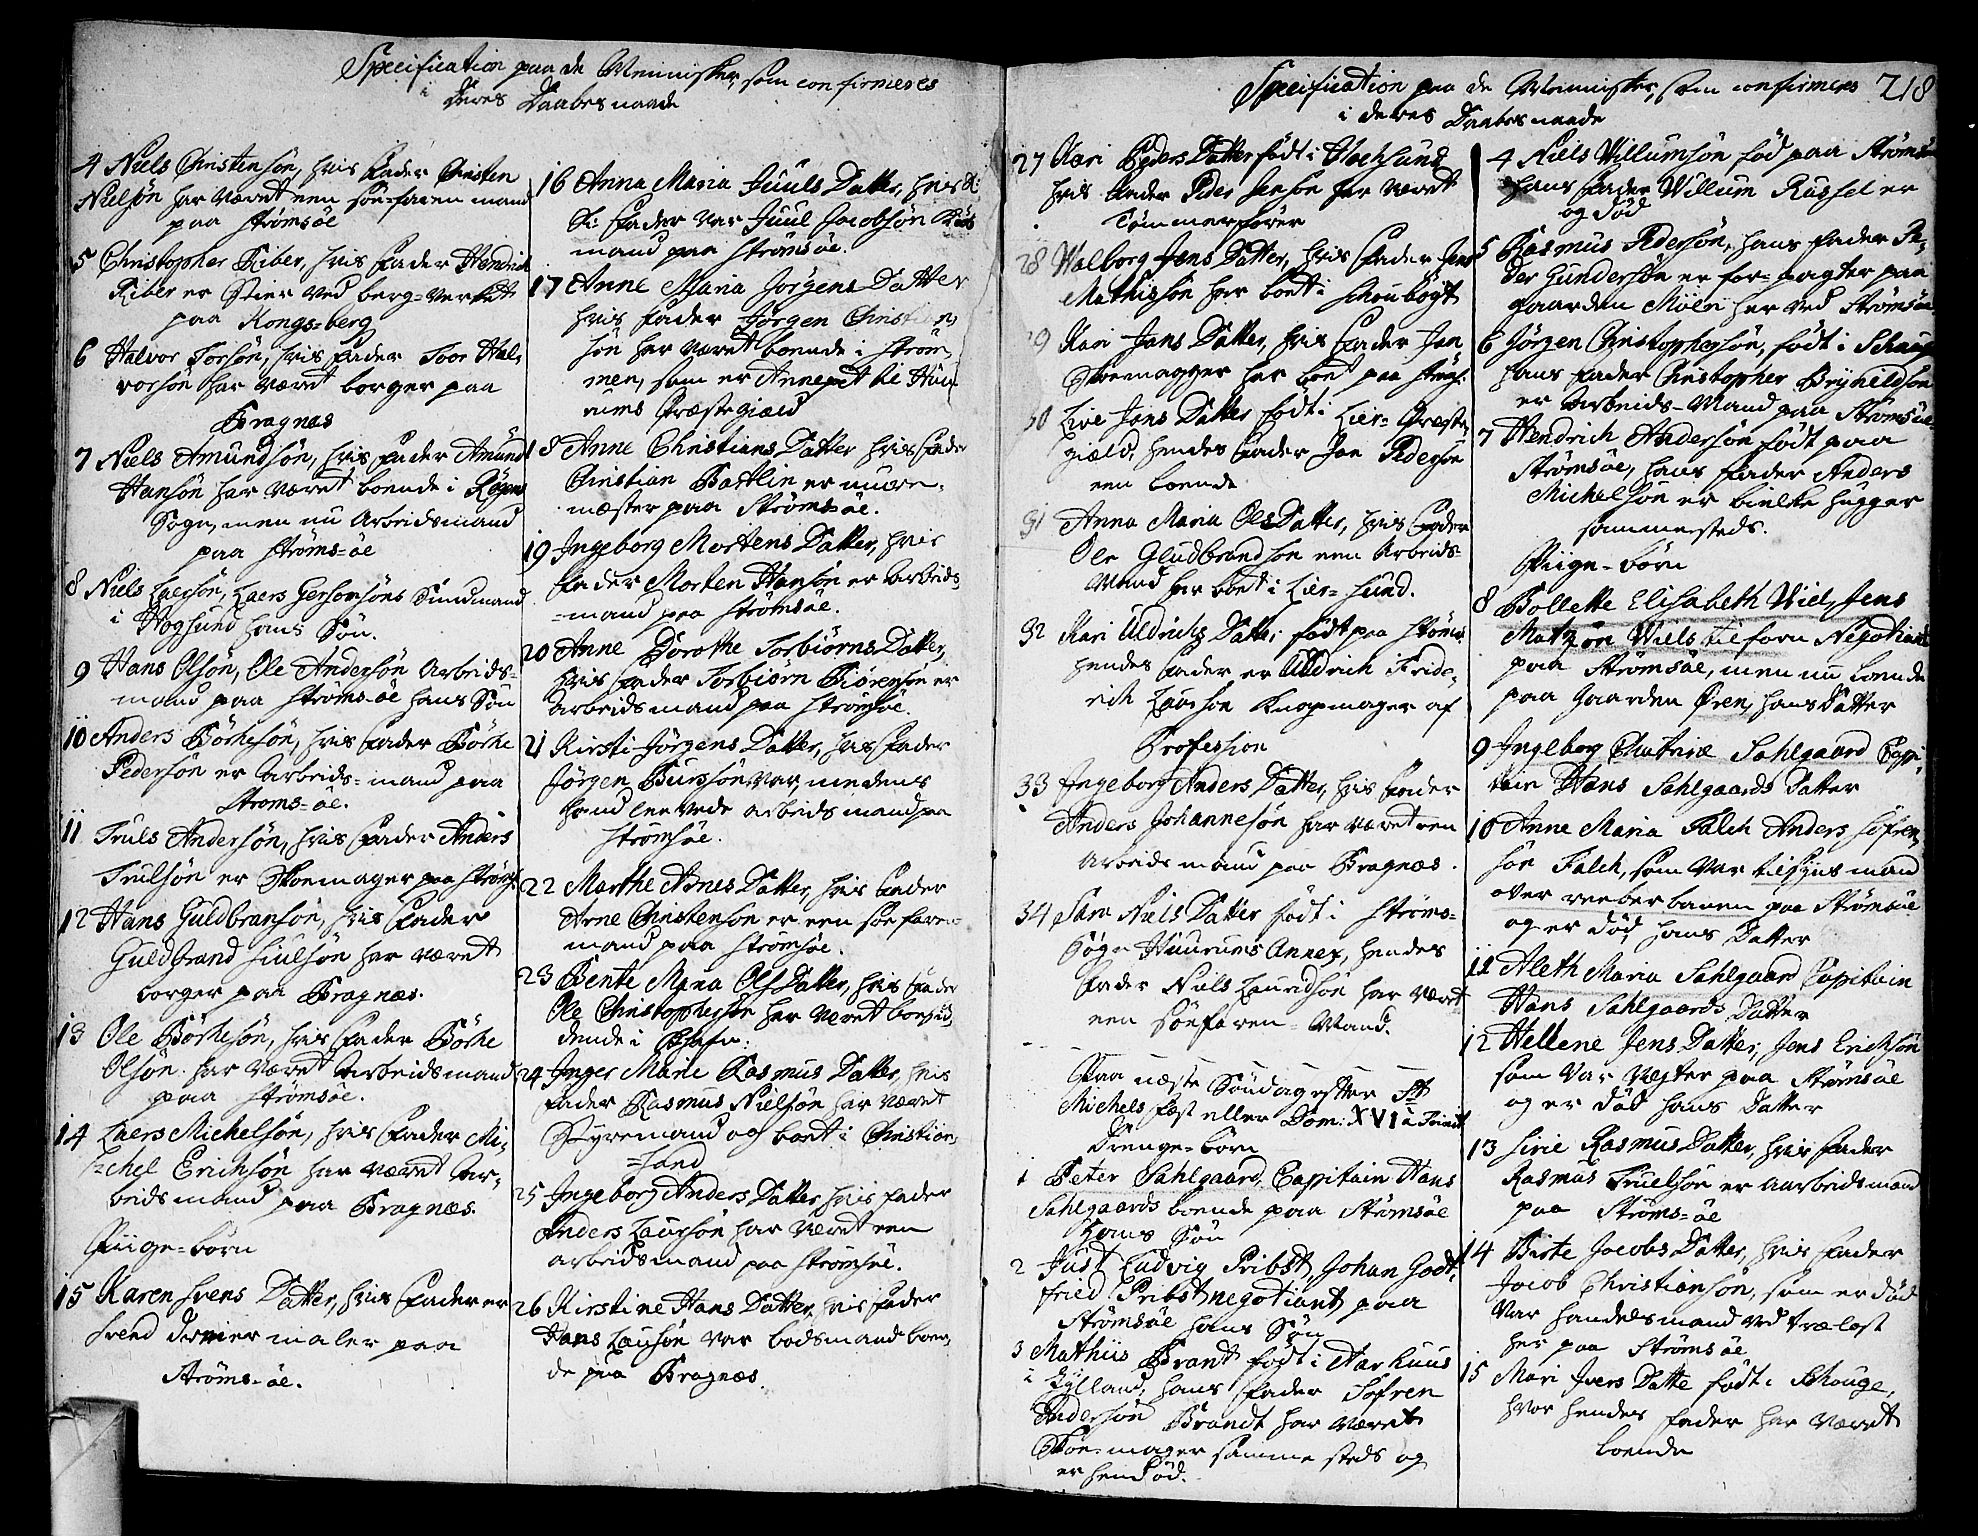 Specification paa de Mennisker, som confirmeres
i Deres Daabes naade
4 Niels Christensön, hvis Fader Christen
Nielsön har været een söe-faren mand
paa Strömsöe
5 Christopher Riber, hvis Fader Hendrich
Riber er Stier ved berg-verket
paa Kongs-berg
6 Halvor Torsön, hvis Fader Toor Hal-
vorsön har været borger paa
Bragnæs
7 Niels Amundsön, hvis Fader Amund
Hansön har været boende i Rögens
Sogn, men nu Arbeidsmand
paa Ströms-öe
8 Niels Larsön, Laers Gersomsöns
i Hogsund hans Sön.
9 Hans Olsön, Ole Andersön Arbeids-
mand paa Ströms-öe hans Sön
10 Anders Börhesön, hvis Fader Börhe
Pedersön er Arbeids-mand paa
Ströms-öe.
11 Truls Andersön, hvis Fader Anders
Trulsön er Skoemager paa Ströms:
12 Hans Guldbransön, hvis Fader
Guldbrand Siulsön har været
borger paa Bragnæs.
13 Ole Börhesön, hvis Fader Börhe
Olsön har været Arbeidsmand
paa Strömsöe.
14 Laers Michelsön, hvis Fader Mi-
chel Erichsön har været Ar-
beidsmand paa Bragnæs.
Piige-börn
15 Karen Svens Datter, hvis Fader er
Svend maler paa
Ströms-öe.
16 Anna Maria Juuls Datter, hvis S:
S: Fader var Juul Jacobsön
mand paa Strömsöe.
17 Anne Maria Jörgens Datter
hvis Fader Jörgen Christen
sön har været boende i Ström-
men, som er Annexet til Huu-
rums Præstegield
18 Anne Christians Datter hvis Fader
Christian Bartlin er muur-
mæster paa Strömsöe.
19 Ingeborg Mortens Datter, hvis
Fader Morten Hansön er Arbeids-
-mand paa Strömsöe.
20 Anne Dorothe Torbiörns Datter,
hvis Fader Torbiörn Biörensön er
Arbeidsmand paa Strömsöe.
21 Kirsti Jörgens Datter, hvis Fader
Jörgen Burssön var, medens
hand levede arbeidsmand paa
Strömsöe.
22 Marthe Arnes Datter, hvis Fader
Arne Christensön er een söe faren
mand paa Strömsöe.
23 Bente Maria Ols Datter, hvis Fader
Ole Christophersön har været
i
24 Inger Marie Rasmus Datter, hvis
Fader Rasmus Nielsön har været
Styremand og boet i Christian-
-sand
25 Ingeborg Anders Datter, hvis Fader
Anders Laursön har været een
arbeidsmand paa Strömsöe.
26 Kirstine Hans Datter, hvis Fader
Hans Laursön var bodsmand boen-
de paa Bragnæs.
Specification paa de Mennisker, som confirmeres 218
i deres Daabes naade
27 Kari Peders Datter födt i Hochsund
hvis Fader Peder Jensön har været
Tömmerförer
28 Walborg Jens Datter, hvis Fader Jens
Mathissön har boet i
29 Kari Jans Datter, hvis Fader Jan
Skoemagger har boet paa Ströms:
30 Live Jans Datter födt i Lier-Præste-
gield, hendes Fader Jan Pedersön
een boende
31 Anna Maria Ols Datter, hvis Fader
Ole Gludbrandsön een Arbeids-
Mand har boet i Lier-Sund.
32 Kari Uldrichs Datter födt paa Ströms:
hendes Fader er Uldrich Fride-
rich Laursön Knapmager af
Profession
33 Ingeborg Anders Datter, hvis Fader
Anders Johannesön har været een
Arbeidsmand paa Bragnæs.
34 Sara Niels Datter födt i Ströms-
Sogn Huurums Annex, hendes
Fader Niels Lauridsön har været
een söefaren-Mand.
Paa næste Söndag efter St.
Michels fest eller Dom: XVI à Trinit
Drenge-börn
1 Peter Sahlgaard, Capitain Hans
Sahlgaards boende paa Strömsöe
Hans Sön
2 Just Ludvig Pribst, Johan Godt-
fried Pribst negotiant paa
Strömsöe hans Sön
3 Mathiis Brant födt i Aarhuus
i Jylland, hans Fader Sofren
Andersön Brandt har været
Skoe-mager sammesteds og
er hendöd.
4 Niels Willumsön föd paa Strömsöe
Hans Fader Willum Russel er
og död
5 Rasmus Pedersön, hans Fader Pe-
der Gundersön er for-pagter paa
gaarden her ved Strömsöe
6 Jörgen Christophersön, födt i
hans Fader Christopher Bryhildsön
er Arbeids-Mand paa Strömsöe
7 Hendrich Andersön födt paa
Strömsöe, hans Fader Anders
Michelsön er bielke hugger
sammesteds.
Piige-börn
8 Bollette Elisabeth Wiel, Jens
Matzön Wiels tilforn Negotiant
paa Strömsöe, men nu boende
paa Gaarden Ören, hans Datter
9 Ingeborg Sahlgaard Capi-
tain Hans Sahlgaards Datter
10 Anne Maria Falch Anders Sofren-
sön Falch, som var tilsyns mand
over reeberbanen paa Strömsöe
og er död, hans Datter
11 Aleth Maria Sahlgaard Capitain
Hans Sahlgaards Datter
12 Hellene Jens Datter, Jens Erichsön
som var Vegter paa Strömsöe
og er död hans Datter
13 Sirie Rasmus Datter, hvis Fader
Rasmus Truelsön er aarbeidsmand
paa Ströms-öe
14 Birte Jacobs Datter, hvis Fader
Jacob Christiansön, som er död
var handelsmand ved trælast
her paa Strömsöe
15 Mari Ivers Datte födt i Skouge,
hvor hendes Fader har været
boende